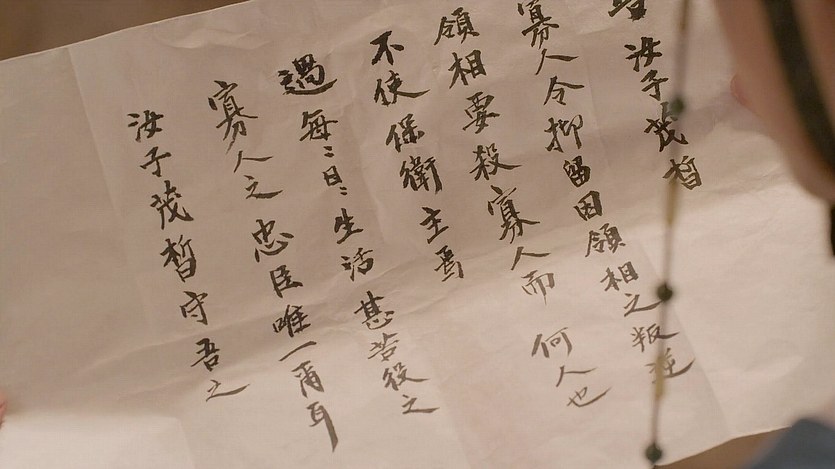 汝子茂晳
寡人今抑留因領相之叛逆
領相要殺寡人而 何人也
不使保衛主焉
過每〻日〻生活甚若役之
寡人之忠臣唯一耳
汝子茂晳守吾之